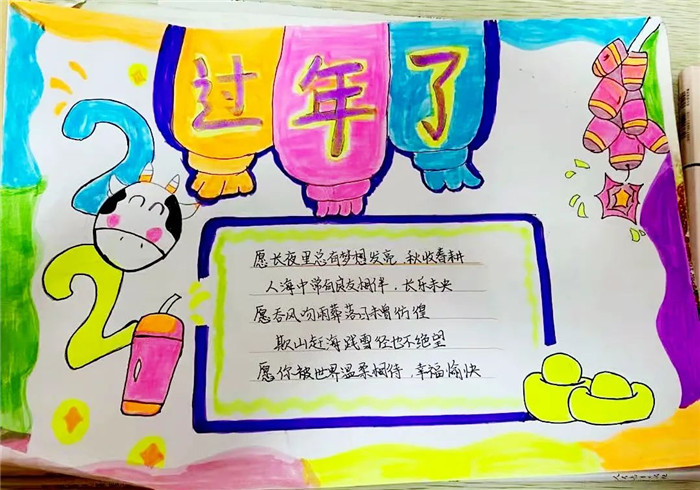 过年了
2
2
愿长夜里总有梦想发亮,秋收春耕
人海中常有良友相伴，长乐未央
愿吞风吻雨葬落日未曾彷徨
欺山赶海践雪径也不绝望
愿你被世界温柔相待,幸福愉快